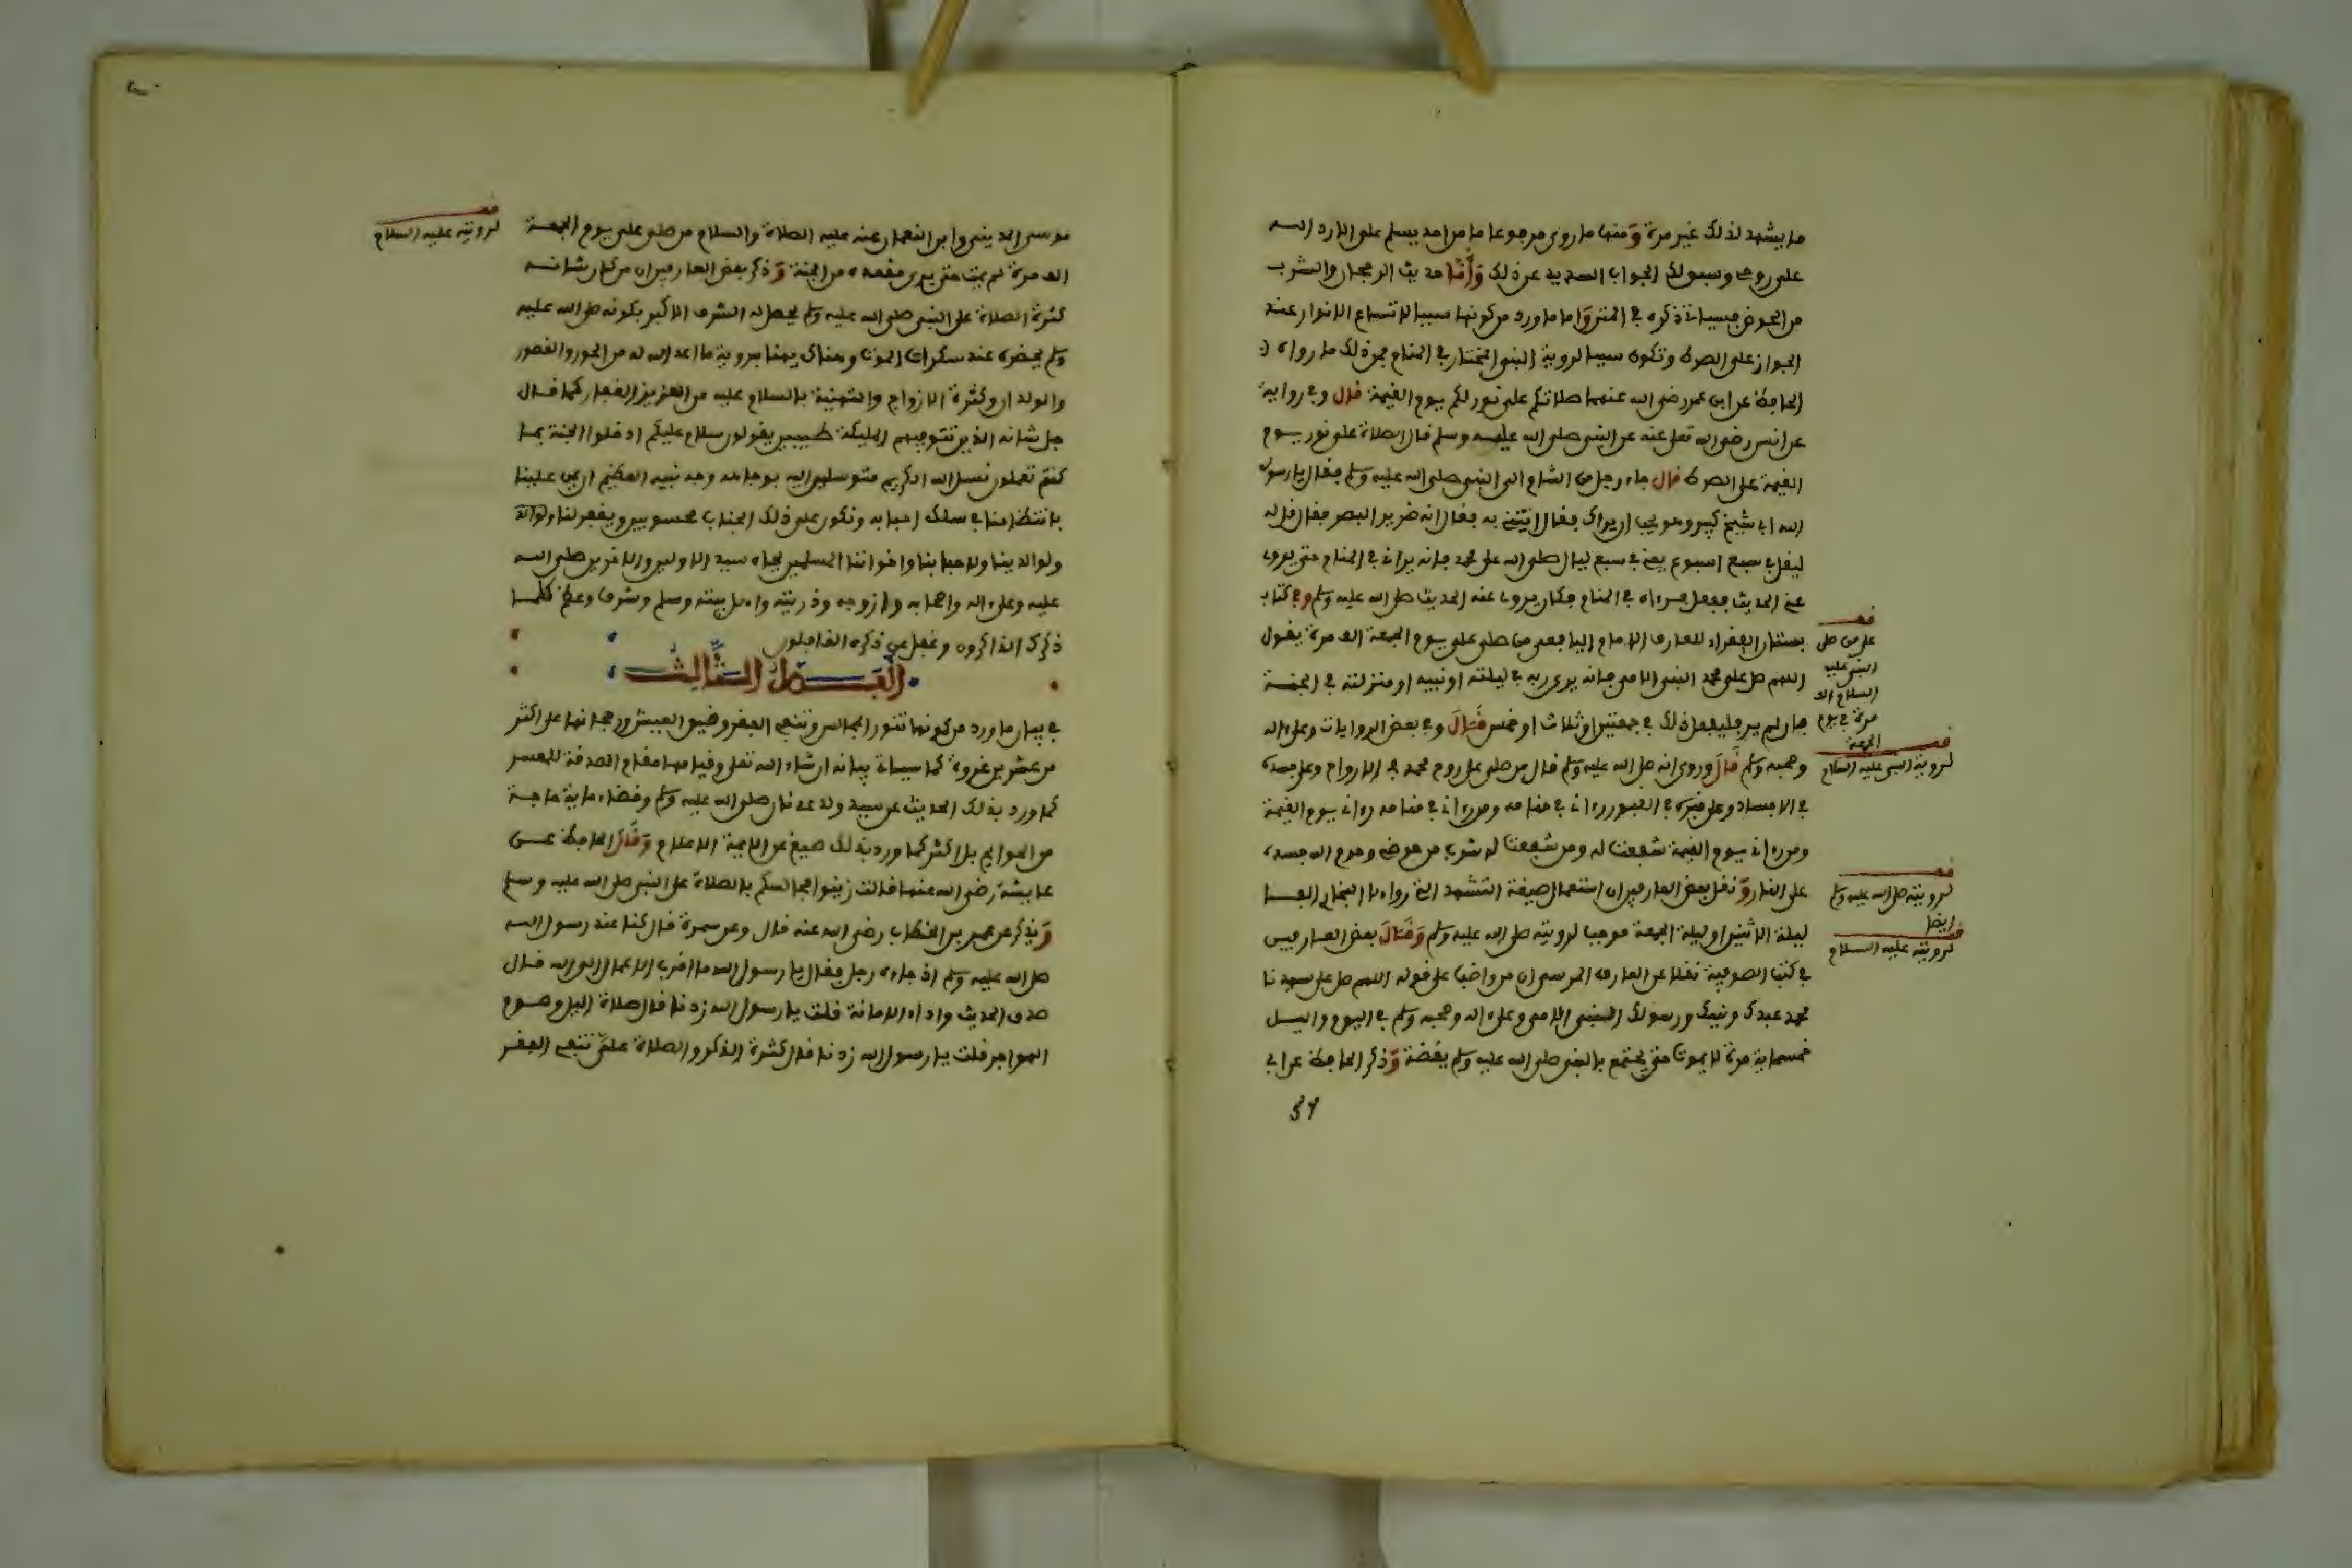 ما يشهد لذلك غير مرة ومنها ما روى مرجوعا ما من احد يسلم علي الا رد الله
على روحي وسبولك الجواب السديد عن ذلك وأما حديث الرجحان والشرب
من الحوض فسياتي ذكره في المتن واما ما ورد من كونها سببا لاتساع الانوار عند
الجواز على الصراط وتكون سببا لروية النبي المختار في المنام فمن ذلك ما رواه
الحافظ عن ابن عمر رضي الله عنهما صلاتكم علي نور لكم يوم القيمة قال وفي رواية
عن انس رضي الله تعلى عنه عن النبي صلى الله عليه وسلم قال الصلاة علي نور يوم
القيمة على الصراط قال جاء رجل من الشام الى النبي صلى الله عليه وسلم فقال يا رسول
الله ابي شيخ كبير وهو يحب ان يراك فقال ائتني به فقال انه ضرير البصر فقال قل له
ليقل في سبع اسبوع يعني في سبع ليال صلى الله على محمد فانه يراني في المنام حتى يروي
عني الحديث ففعل فرءاه في المنام فكان يروي عنه الحديث صلى الله عليه وسلم وفي كتاب
بستان الفقراء للعارف الامام اليافعي من صلى علي يوم الجمعة الف مرة يقول
اللهم صل على محمد النبي الامي فانه يرى ربه في ليلته او نبيه او منزلته في الجنة
فان لم ير فليفعل ذلك في جمعتين او ثلاث او خمس قال وفي بعض الروايات وعلى اله
وصحبه وسلم قال وروي انه صلى الله عليه وسلم قال من صلى على روح محمد في الارواح وعلى جسده
في الاجساد وعلى قبره في القبور رءاني في منامه ومن رءاني في منامه رءاني يوم القيمة
ومن رءاني يوم القيمة شفعت له ومن شفعت له شرب من حوضي وحرم الله جسده
على النار ونقل بعض العارفين ان استعمال صيغة التشهد التي رواها البخاري الفا
ليلة الاثنين او ليلة الجمعة موجب لرويته صلى الله عليه وسلم وقال بعض العارفين
في كتب الصوفية نقلا عن العارف المرسي ان من واضب على قوله اللهم صل على سيدنا
محمد عبدك ونبيك ورسولك النبي الامي وعلى اله وصحبه وسلم في اليوم والليل
خمسماية مرة لا يموت حتى يجتمع بالنبي صلى الله عليه وسلم يقضة وذكر الحافظ عن ابي
قف
على من صلى
النبي عليه
السلام الف
مرة في يوم
الجمعة
قف
لروية النبي عليه السلام
قف
لرويته صلى الله عليه وسلم
ايضا
قف
لرويته عليه السلام
موسى المديني وابن النعمان عنه عليه الصلاة والسلام من صلى علي يوم الجمعة
الف مرة لم يمت حتى يرى مقعده من الجنة وذكر بعض العارفين ان من كان شانه
كثرة الصلاة على النبي صلى الله عليه وسلم يحصل له الشرف الاكبر بكونه صلى الله عليه
وسلم يحضره عند سكرات الموت وهناك يهنا بروية ما اعد الله له من الحور والقصور
والولدان وكثرة الازواج والتهنية بالسلام عليه من العزيز الغفار كما قال
جل شانه الذين تتوفيهم المليكة طيبين يقولون سلام عليكم ادخلوا الجنة بما
كنتم تعملون نسل الله الكريم متوسلين اليه بوجاهة وجه نبيه العظيم ان يمن علينا
بانتظامنا في سلك احبابه ونكون على ذلك الجناب محسوبين ويغفر لنا
ولوالدينا ولاحبابنا واخواننا المسلمين بجاه سيد الاولين والاخرين صلى الله
عليه وعلى اله واصحابه وازوجه وذريته واهل بيته وسلم وشرف وعظم كلما
ذكرك الذاكرون وغفل عن ذكره الغافلون
الفصل الثالث
في بيان ما ورد من كونها تنور المجالس وتنفي الفقر وضيق العيش ورجحانها على اكثر
من عشرين غزوة كما سياتي بيانه ان شاء الله تعلى وقيامها مقام الصدقة للمعسر
كما ورد بذلك الحديث عن سيد ولد عدنان صلى الله عليه وسلم وقضاء ماية حاجة
من الحوايج بل اكثر كما ورد بذلك صيغ عن الايمة الاعلام وقال الحافظ عن
عايشة رضي الله عنها قالت زينوا مجالسكم بالصلاة على النبي صلى الله عليه وسلم
وبذكر عمر بن الخطاب رضي الله عنه قال وعن سمرة قال كنا عند رسول الله
صلى الله عليه وسلم اذ جاءه رجل فقال يا رسول الله ما اقرب الاعمال الى الله قال
صدق الحديث واداء الامانة قلت يا رسول الله زدنا قال صلاة اليل وصوم
الهواجر قلت يا رسول الله زدنا قال كثرة الذكر والصلاة علي تنفي الفقر
قف
لرويته عليه السلام